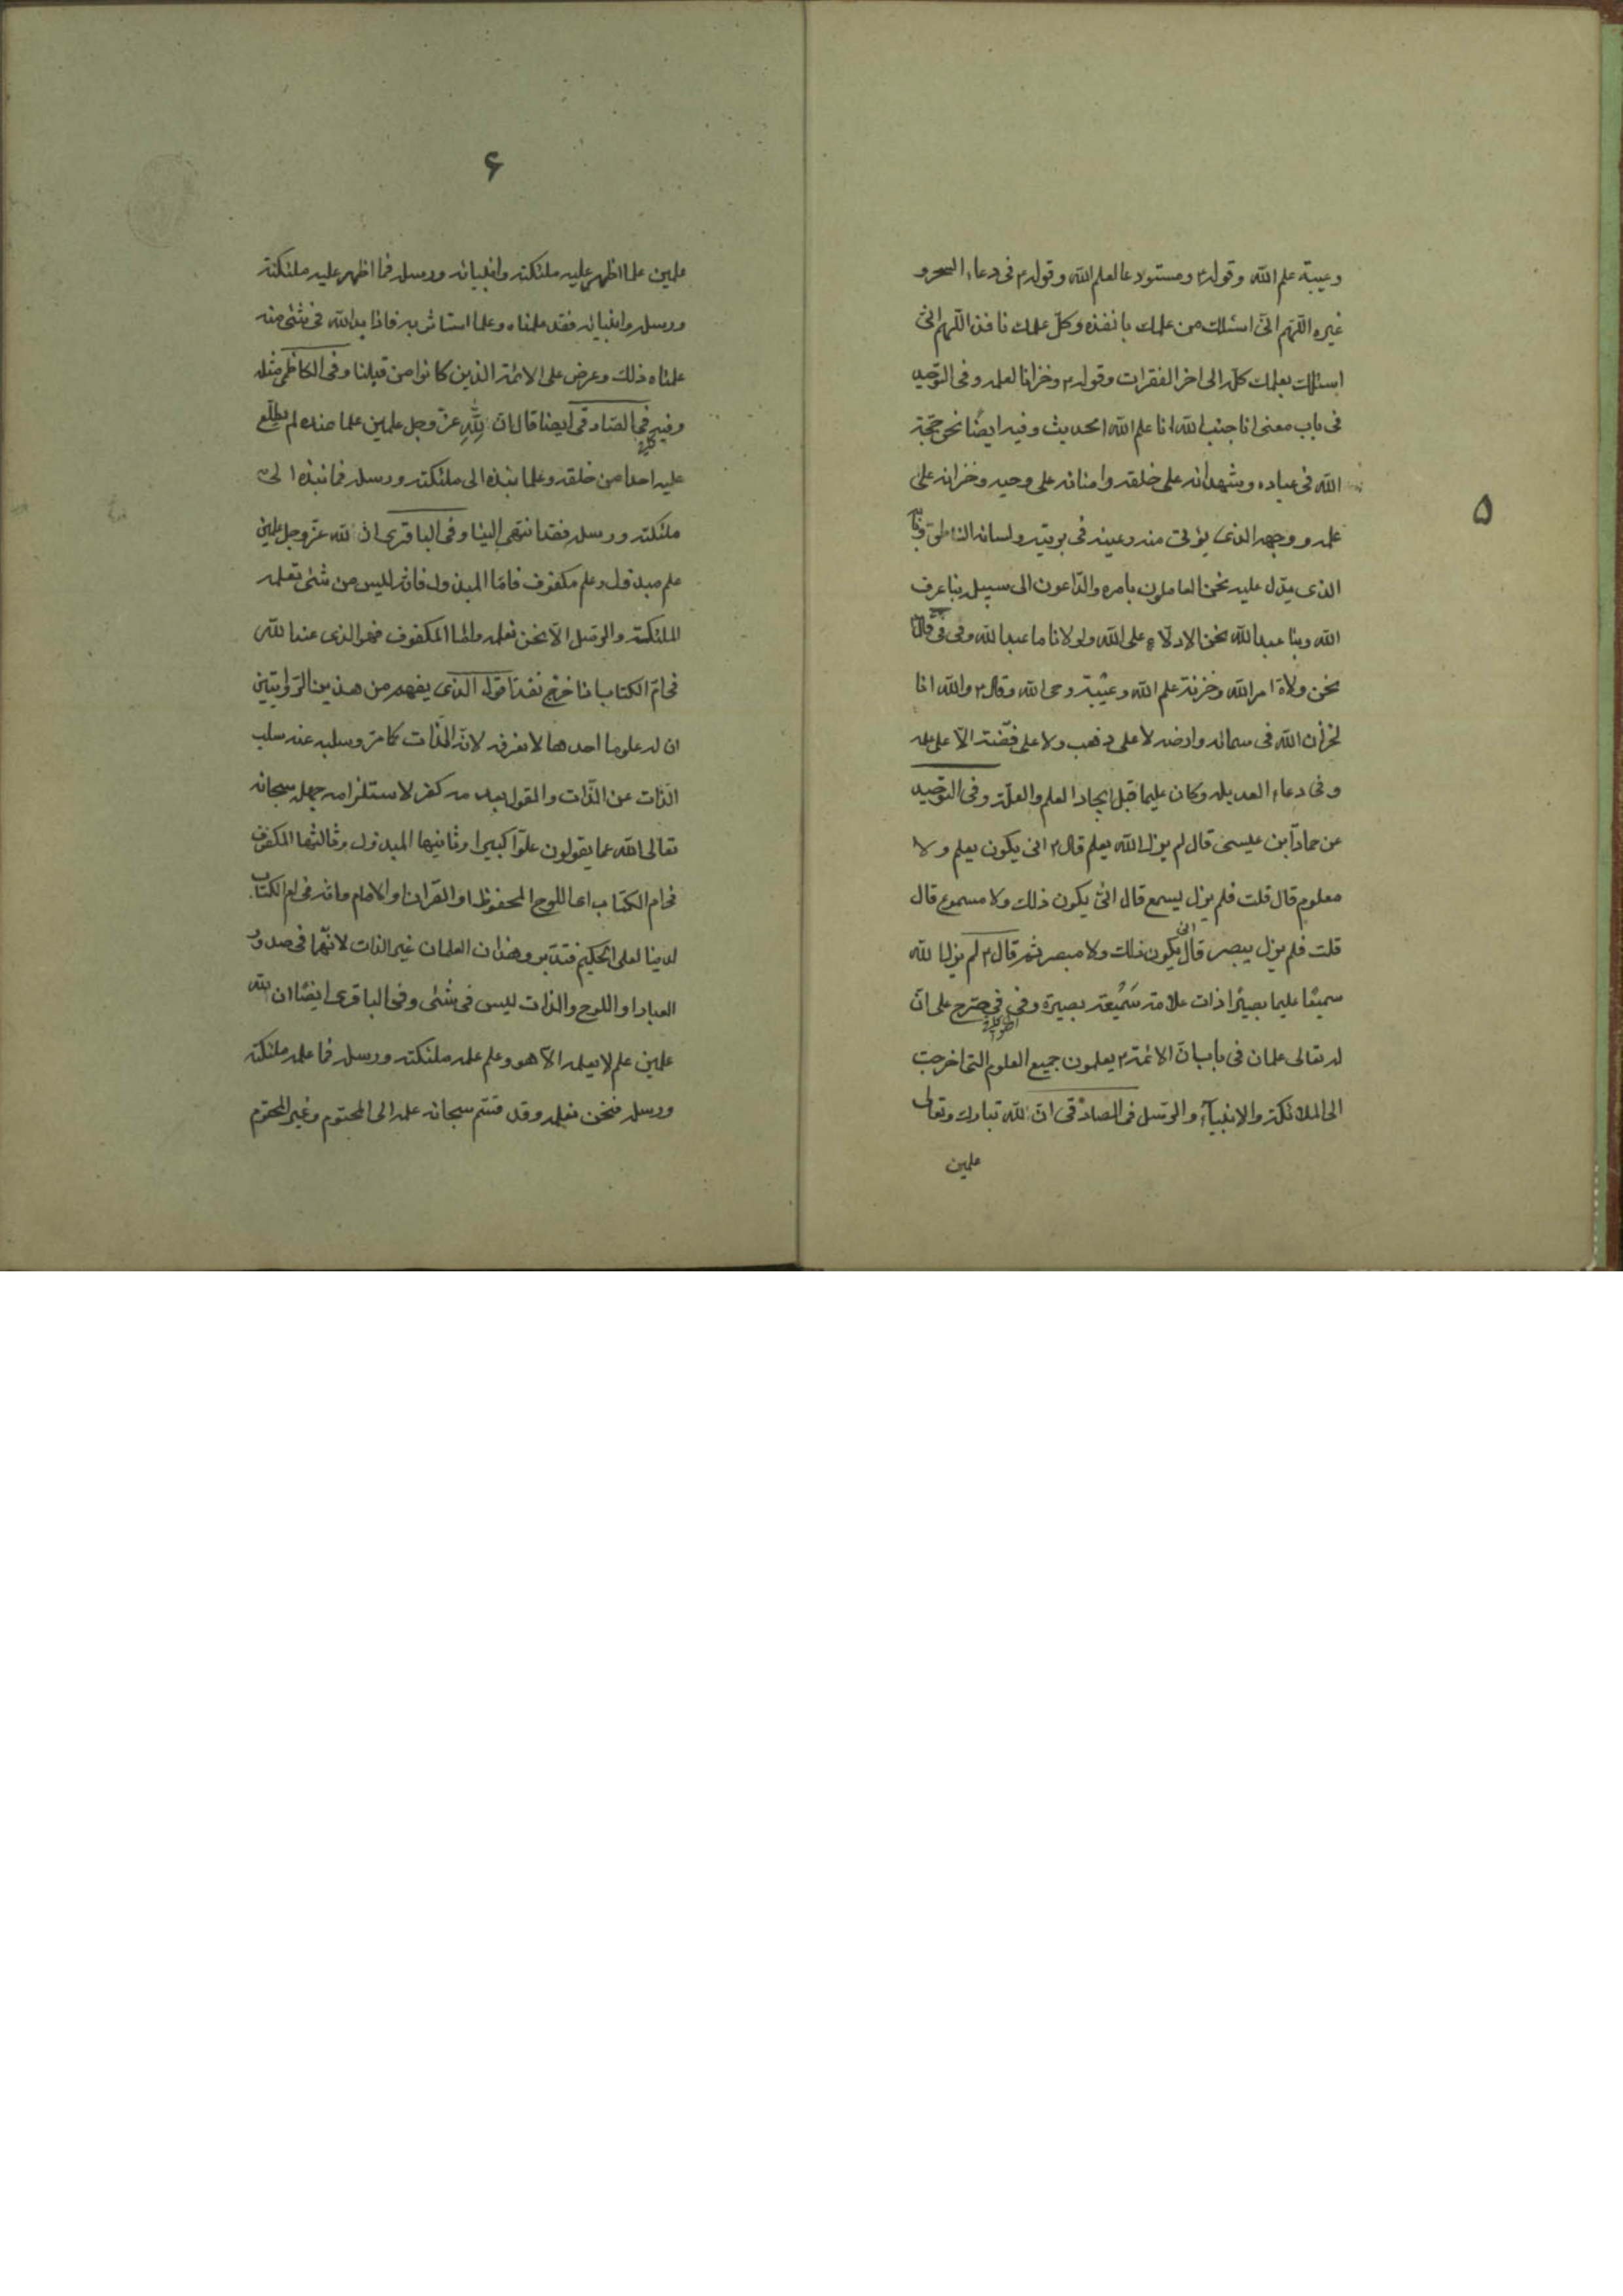 ۵
وعيبة علم الله وقوله ومستودعا لعلم الله وقوله فى دعاء السحر و
غيره اللّهم انّى اسئلك من علمك بانفذه وكلّ علمك نافذ اللّهم انّى
اسئلك بعلمك كلّه الى اخر الفقرات وقوله وخزانا لعلمه وفى التوحيد
فى باب معنى انا جنب الله انا علم الله الحديث وفيه ايضًا نحن حجّة
الله فى عباده وشهدائه على خلقه وامنائه على وحيه وخزانه على
علمه ووجهه الذى يؤتى منه وعينه فى بريته ولسانه الناطق وبابه
الذى يدّل عليه نحن العاملون بامره والدّاعون الى سبيله بنا عرف
الله وبنا عبد الله نحن الادلّاء على الله ولولانا ما عبد الله وفى قال
نحن ولاة امر الله وخزنة علم الله وعيبة وحى الله وقال والله انا
لخزّان الله فى سمائه وارضه لا على ذهب ولا على فضّة الّا على علمه
وفى دعاء العديله وكان عليما قبل ايجاد العلم والعلّة وفى التوحيد
عن حمّاد ابن عيسى قال لم يزل الله يعلم قال انى يكون يعلم ولا
معلوم قال قلت فلم يزل يسمع قال انّى يكون ذلك ولا مسموع قال
قلت فلم يزل يبصر قال انى يكون ذلك ولا مبصر ثم قال لم يزل الله
سميعًا عليما بصيرًا ذات علامة سميعة بصيرة وفى فى صرح على انّ
له تعالى علمان فى باب انّ الائمة يعلمون جميع العلوم التى اخرجت
الى الملائكة والانبيآء والرّسل فى الصادقى انّ لله تبارك وتعالى
علمين
۶
علمين علما اظهر عليه ملئكته وانبيائه ورسله فما اظهر عليه ملئكته
ورسله وانبيائه فقد علمناه وعلما استاثر به فاذا بدا لله فى شئى منه
علمناه ذلك وعرض على الائمة الذين كانوا من قبلنا وفى الكاظمى مثله
وفيه فى الصّادقى ايضا قال انّ لله عزّ وجل علمين علما عنده لم يطّلع
عليه احدا من خلقه وعلما نبذه الى ملئكته ورسله فما نبذه الى
ملئكته ورسله فقد انتهى الينا وفى الباقرى ان لله عزّ وجل علمين
علم مبذول وعلم مكفوف فامّا المبذول فانه ليس من شئى تعلمه
الملئكة والرّسل الّا نحن نعلمه وامّا المكفوف فهو الذى عند الله
فى امّ الكتاب اذا خرج نفذ اقول الذى يفهم من هذين الرّوايتين
ان له علوما احدها لا نعرفه لانّه الذّات كما مرّ وسلبه عنه سلب
الذّات عن الذّات والقول بعدمه كفر لاستلزامه جهله سبحانه
تعالى الله عما يقولون علوّا كبيرا وثانيها المبذول وثالثها المكفوف
فى ام الكتاب اى اللوح المحفوظ او القران او الامام وانّه فى ام الكتاب
لدينا لعلى الحكيم فتدّبر وهذان العلمان غير الذات لانّهما فى صدور
العباد او اللوح والذات ليس فى شئى وفى الباقرى ايضًا ان لله
علمين علم لا يعلمه الّا هو وعلم علمه ملئكته ورسله فما علمه ملئكته
ورسله فنحن نعلمه وقد قسّم سبحانه علمه الى المحتوم وغير المحتوم